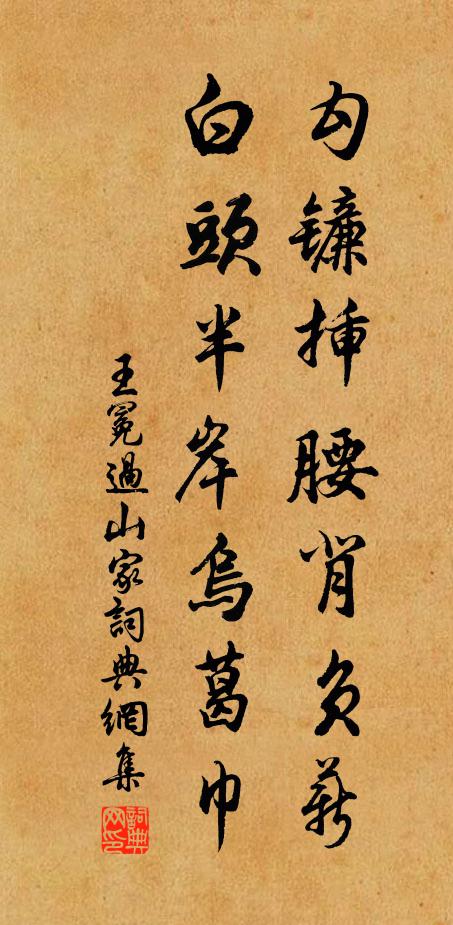 勾镰挿腰背负薪
白頭半岸烏葛巾
王冕過山家詞典網集
詞典网印